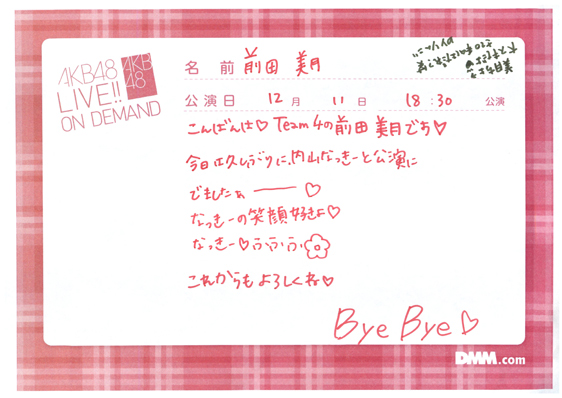 AKB48
LIVE!!
ON DEMAND
AKB
48
名前 前田 美月
公演日 12月 11日 18:30 公演
こんばんは♡Team4の前田 美月です♡
今日は久しぶりに、内山なっきーと公演に
でましたぁ――♡
なっきーの笑顔好きよ♡
なっきー♡ふふふ
これからもよろしくね♡
Bye Bye♡
DMM.com